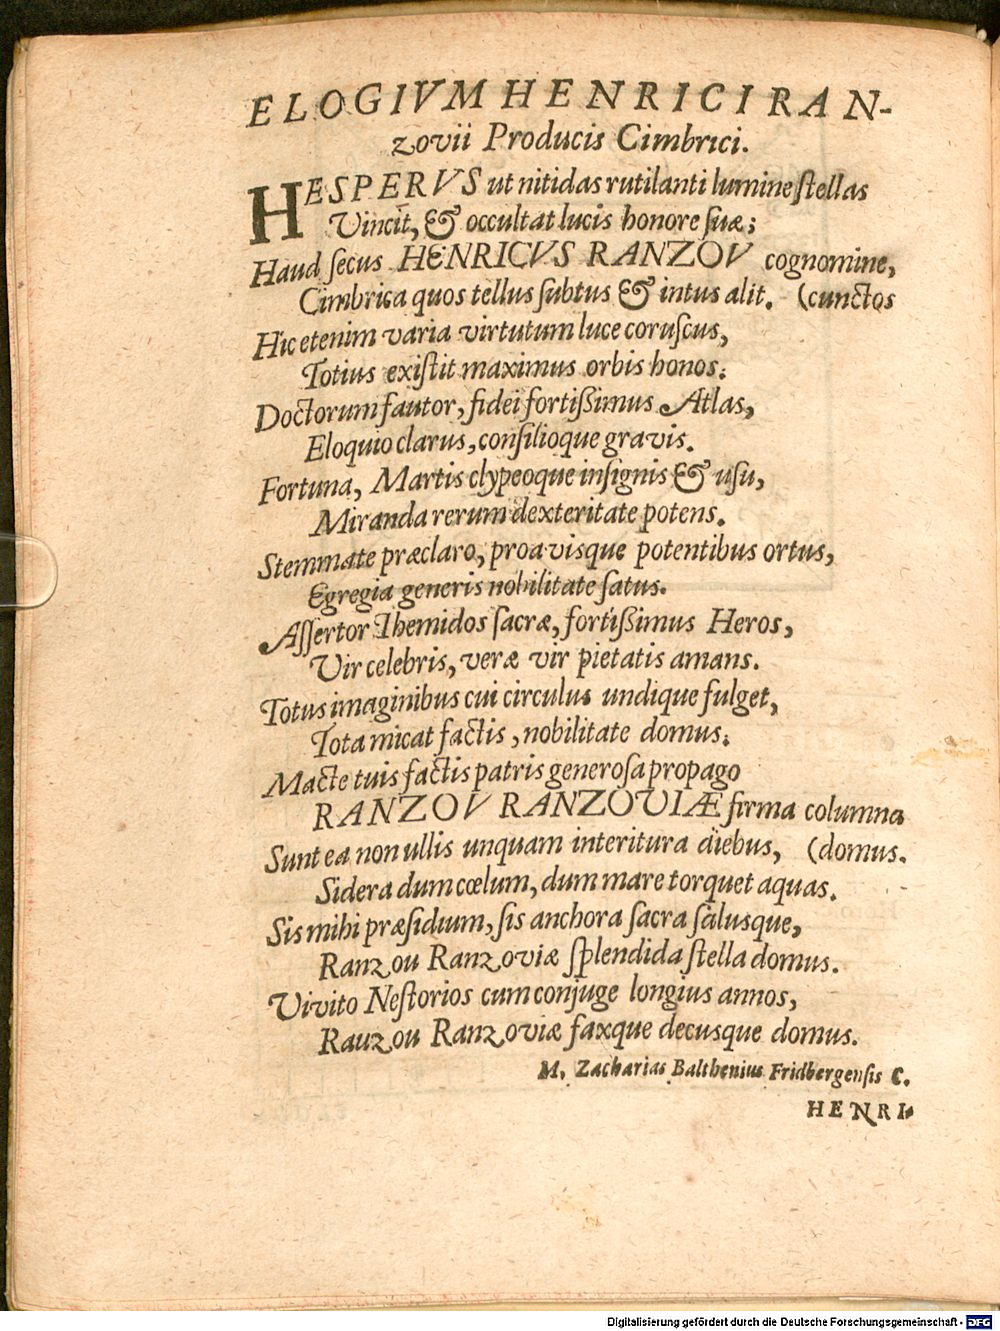 ELOGIVM HENRICI RAN-
zovii Producis Cimbrici.
HESPERVS ut nitidas rutilanti lumine ſtellas
Vincit, & occultat lucis honore ſuæ;
Haud ſecus HENRICVS RANZOV cognomine,
Cimbrica quos tellus ſubtus & intus alit. (cunctos
Hic etenim varia virtutum luce coruſcus,
Totius exiſtit maximus orbis honos.
Doctorum fautor, fidei fortißimus Atlas,
Eloquio clarus, conſilioque gravis.
Fortuna, Martis clypeoque inſignis & uſu,
Miranda rerum dexteritate potens.
Stemmate præclaro, proavisque potentibus ortus,
Egregia generis nobilitate ſatus.
Aſſertor Themidos ſacræ, fortißimus Heros,
Vir celebris, veræ vir pietatis amans.
Totus imaginibus cui circulus undique fulget,
Tota micat factis, nobilitate domus.
Macte tuis factis patris generoſa propago
RANZOV RANZOVIÆ firma columna
Sunt ea non ullis unquam interitura diebus, (domus.
Sidera dum cœlum, dum mare torquet aquas.
Sis mihi præſidium, ſis anchora ſacra ſalusque,
Ranzou Ranzoviæ ſplendida ſtella domus.
Vivito Neſtorios cum conjuge longius annos,
Rauzou Ranzoviæ faxque decusque domus.
M. Zacharias Balthenius Fridbergenſis C.
HENRI-
Digitalisierung gefördert durch die Deutsche Forschungsgemeinschaft - DFG